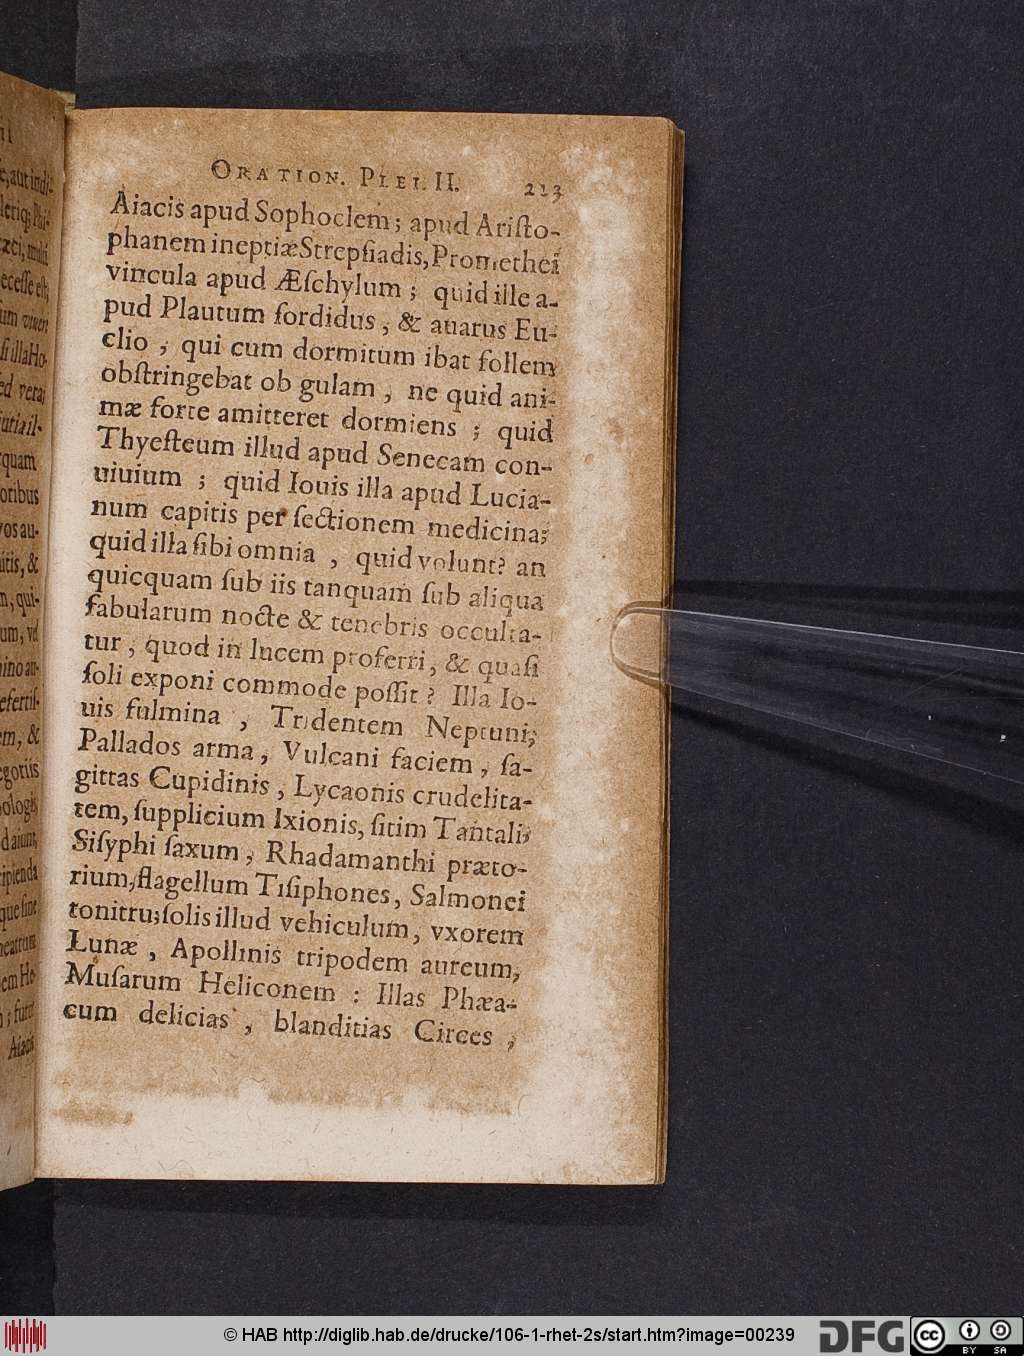 ORATION. PLEI. II. 213
Aiacis apud Sophoclem; apud Ariſto-
phanem ineptiæ Strepſiadis, Promethei
vincula apud Æſchylum; quid ille a-
pud Plautum ſordidus, & auarus Eu-
clio, qui cum dormitum ibat follem
obſtringebat ob gulam, ne quid ani-
mæ forte amitteret dormiens; quid
Thyeſteum illud apud Senecam con-
uiuium; quid Iouis illa apud Lucia-
num capitis per ſectionem medicina;
quid illa ſibi omnia, quid volunt? an
quicquam ſub iis tanquam ſub aliqua
fabularum nocte & tenebris occulta-
tur, quod in lucem proferri, & quaſi
ſoli exponi commode poſſit? Illa Io-
uis fulmina, Tridentem Neptuni;
Pallados arma, Vulcani faciem, ſa-
gittas Cupidinis, Lycaonis crudelita-
tem, ſupplicium Ixionis, ſitim Tantali,
Siſyphi ſaxum, Rhadamanthi præto-
rium, flagellum Tiſiphones, Salmonei
tonitru; ſolis illud vehiculum, vxorem
Lunæ, Apollinis tripodem aureum,
Muſarum Heliconem: Illas Phæa-
cum delicias, blanditias Circes,
e, aut indi-
multi
eceſſe eſt;
ſi illa Ho-
ed verai
quam
oribus
vos au-
itis, &
m, qui-
um, vel
mino au-
efertiſ-
em, &
egotiis
ologis
d aiunt,
cipienda
que ſine
heatrum
em He-
; furor
Aiacis
© HAB http://diglib.hab.de/drucke/106-1-rhet-2s/start.htm?image=00239
DFG
cc BY SA